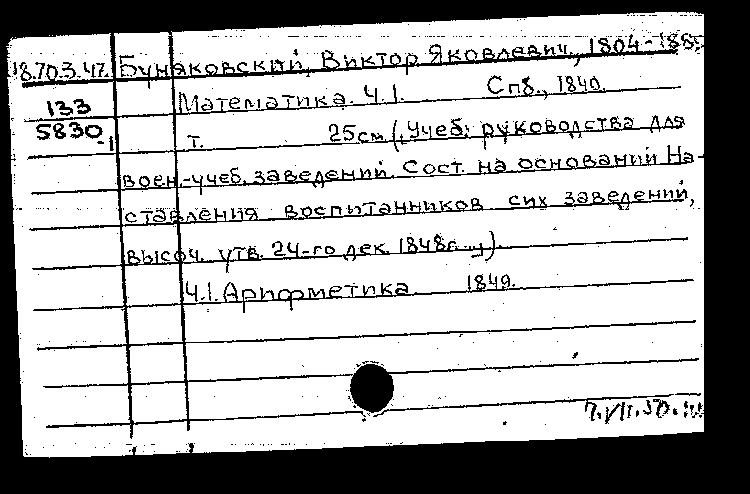 18.70.3.47. Буняковский, Виктор Яковлевич, 1804-188
133 Математика. Ч.1. Спб., 1840.
5830-1 т. 25см (Учеб. руководства для
воен.-учеб. заведений. Сост. на оснований На-
ставления воспитанников сих заведений,
высоч. утв. 24-го дек. 1848г. ...)
Ч.1. Арифметика 1849.
7.VII.50.